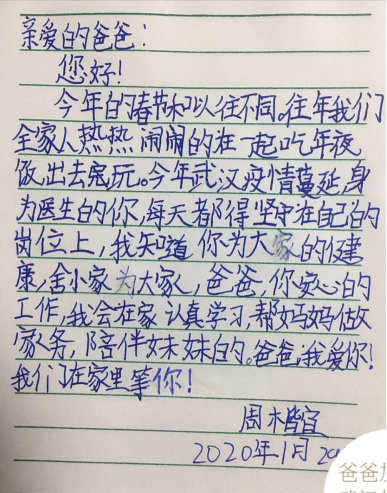 亲爱的爸爸:
您好!
今年的春节和以往不同。往年我们
全家人热热闹闹的在一起吃年夜
饭,出去玩。今年武汉疫情蔓延,身
为医生的你,每天都得坚守在自己的
岗位上,我知道你为大家的健
康,舍小家为大家,爸爸,你安心的
工作,我会在家认真学习,帮妈妈做
家务,陪伴妹妹的。爸爸,我爱你!
我们在家里等你!
周木
2020年1月
爸爸